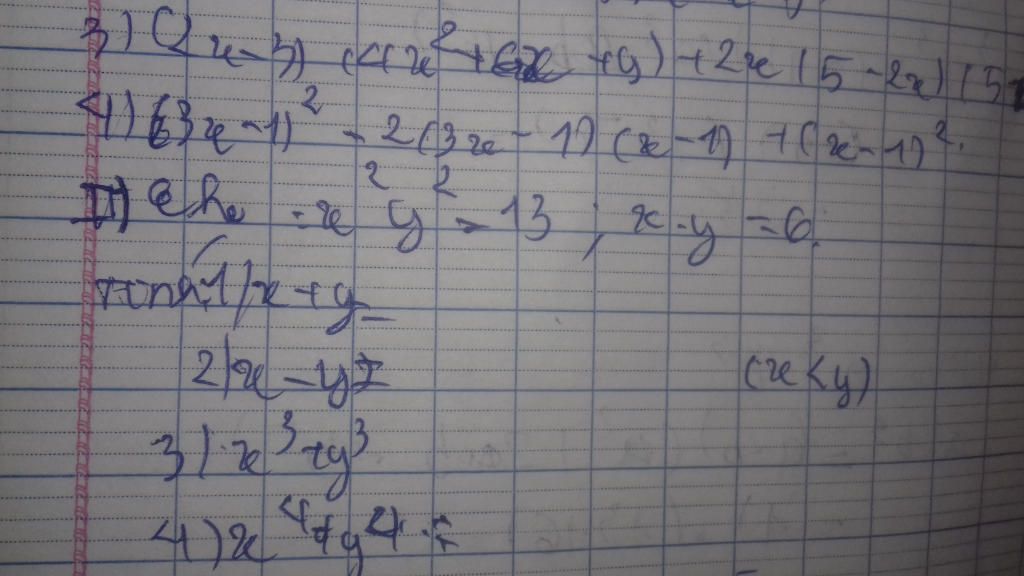 3) (2x-3) (4x²+6x+y) +2x(5-2x)(5
4) (3x-1)² - 2(3x-1)(x-1) + (x-1)².
II) - x² y² = 13 ; x.y = 6.
1) x+y =
2) x-y = (x<y)
3) x³+y³
4) x⁴+y⁴ =